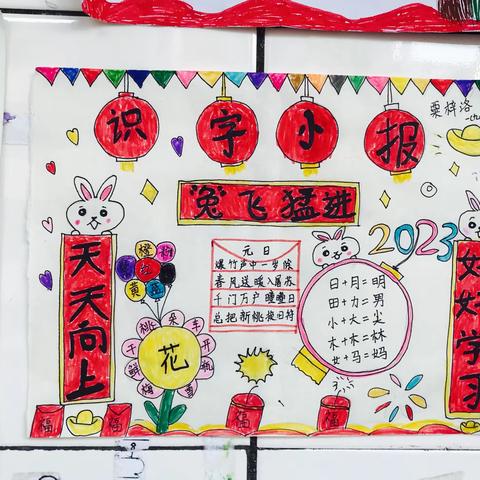 识字小报
"兔"飞猛进
2023
天天向上
好好学习
元日
爆竹声中一岁除
春风送暖入屠苏
千门万户曈曈日
总把新桃换旧符
日+月=明
田+力=男
小+大=尖
木+木=林
女+马=妈
橙
粉
红
黄
花
桃
朵
开
草
鲜
福
福
福
福